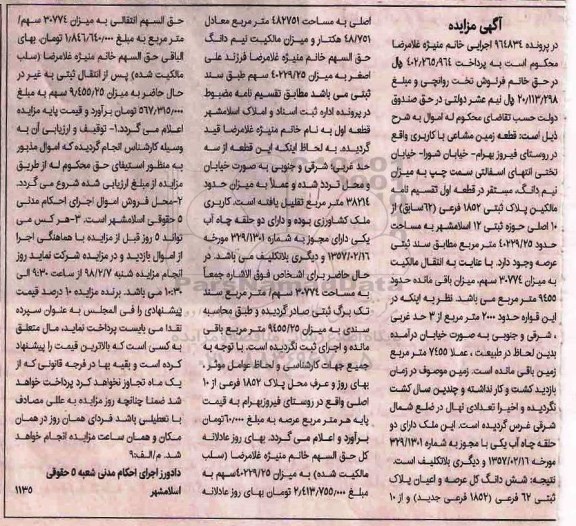 آگهی مزایده
در پرونده ۹۶۴۸۳۴ اجرایی خانم منیژه غلامرضا
محکوم است به پرداخت ۴۰۲/۲۶۵/۹۶۴ ریال
در حق خانم فرنوش تخت روانچی و مبلغ
۲۰/۱۱۳/۲۹۸ ریال نیم عشر دولتی در حق صندوق
دولت حسب تقاضای محکوم له اموال به شرح
ذیل است: قطعه زمین مشاعی با کاربری واقع
در روستای فیروز بهرام- خیابان شورا- خیابان
تختی انتهای آسفالتی سمت چپ به میزان
نیم دانگ، مستقر در قطعه اول تقسیم نامه
مالکین پلاک ثبتی ۱۸۵۲ فرعی (۶۲سابق) از
۱۰ اصلی حوزه ثبتی ۱۲ اسلامشهر به مساحت
حدود ۴۰۲۲۹/۲۵ متر مربع مطابق سند ثبتی
عرصه وجود دارد. با عنایت به انتقال مالکیت
به میزان ۳۰۷۷۴ سهم، میزان باقی مانده حدود
۹۴۵۵ متر مربع می باشد. نظر به اینکه در
این قواره حدود ۲۰۰۰ متر مربع از ۳ حد غربی
، شرقی و جنوبی به صورت خیابان در آمده
بدین لحاظ در طبیعت ، عملا ۷۴۵۵ متر مربع
زمین باقی مانده است. زمین موصوف در زمان
بازدید کشت و کار نداشته و چندین سال کشت
نگردیده و اخیرا تعدادی نهال در ضلع شمال
شرقی غرس گردیده است. این ملک دارای دو
حلقه چاه آب یکی با مجوز به شماره ۳۲۹/۱۳۰۱
مورخه ۱۳۵۷/۰۲/۱۶ و دیگری بلاتکلیف است.
نتیجه: شش دانگ کل عرصه و اعیان پلاک
ثبتی ۶۲ فرعی (۱۸۵۲ فرعی جدید) و از ۱۰
اصلی به مساحت ۴۸۲۷۵۱ متر مربع معادل
۴۸/۷۵۱ هکتار و میزان مالکیت نیم دانگ
حق السهم خانم منیژه غلامرضا فرزند علی
اصغر به میزان ۴۰۲۲۹/۲۵ سهم طبق سند
ثبتی می باشد مطابق تقسیم نامه مضبوط
در پرونده اداره ثبت اسناد و املاک اسلامشهر
قطعه اول به نام خانم منیژه غلامرضا قید
گردیده. به لحاظ اینکه این قطعه از سه
حد غربی؛ شرقی و جنوبی به صورت خیابان
و محل تردد شده و عملا به میزان حدود
۳۸۲۱۴ متر مربع تقلیل یافته است. کاربری
ملک کشاورزی بوده و دارای دو حلقه چاه آب
یکی دارای مجوز به شماره ۳۲۹/۱۳۰۱ مورخه
۱۳۵۷/۰۲/۱۶ و دیگری بلاتکلیف می باشد. در
حال حاضر برای اشخاص فوق الاشاره جمعاً
به مساحت ۳۰۷۷۴ سهم/ متر مربع سند
تک برگ ثبتی صادر گردیده و طبق محاسبه
سندی به میزان ۹۴۵۵/۲۵ متر مربع باقی
مانده و اجرای ثبت نگردیده است. با توجه به
جمیع جهات کارشناسی و لحاظ عوامل موثر ،
بهای روز و عرف محل پلاک ۱۸۵۲ فرعی از ۱۰
اصلی واقع در روستای فیروزبهرام به قیمت
پایه هر متر مربع عرصه به مبلغ ۶۰/۰۰۰تومان
برآورد و اعلام می گردد. بهای روز عادلانه
کل حق السهم خانم منیژه غلامرضا (سلب
مالکیت شده) به میزان ۴۰۲۲۹/۲۵سهم به
مبلغ ۲/۴۱۳/۷۵۵/۰۰۰ تومان بهای روز عادلانه
حق السهم انتقالی به میزان ۳۰۷۷۴ سهم/
متر مربع به مبلغ ۱/۸۴۶/۶۴۰/۰۰۰ تومان. بهای
الباقی حق السهم خانم منیژه غلامرضا (سلب
مالکیت شده) پس از انتقال ثبتی به غیر در
حال حاضر به میزان ۹/۴۵۵/۲۵ سهم به مبلغ
۵۶۷/۳۱۵/۰۰۰ تومان برآورد و قیمت پایه مزایده
اعلام می گردد.۱- توقیف و ارزیابی آن به
وسیله کارشناس انجام گردیده که اموال مذبور
به منظور استیفای حق محکوم له از طریق
مزایده از مبلغ ارزیابی شده شروع می گردد.
۲-محل فروش اموال اجرای احکام مدنی
۵ حقوقی اسلامشهر است. ۳-هر کس می
تواند ۵ روز قبل از مزایده با هماهنگی اجرا
از اموال بازدید و در مزایده شرکت نماید روز
انجام مزایده شنبه ۹۸/۲/۷ از ساعت ۹:۳۰ الی
۱۰:۳۰ می باشد. برنده مزایده ۱۰ درصد قیمت
پیشنهادی را فی المجلس به عنوان سپرده
نقدا می بایست پرداخت نماید، مال متعلق
به کسی است که بالاترین قیمت را پیشنهاد
کرده است و بقیه بها در فرجه قانونی که از
یک ماه تجاوز نخواهد کرد پرداخت خواهد
شد ضمنا چنانچه روز مزایده به عللی مصادف
با تعطیلی باشد فردای همان روز در همان
مکان و همان ساعت مزایده انجام خواهد
شد. م/الف:۹
دادورز اجرای احکام مدنی شعبه ۵ حقوقی
اسلامشهر
۱۱۳۵